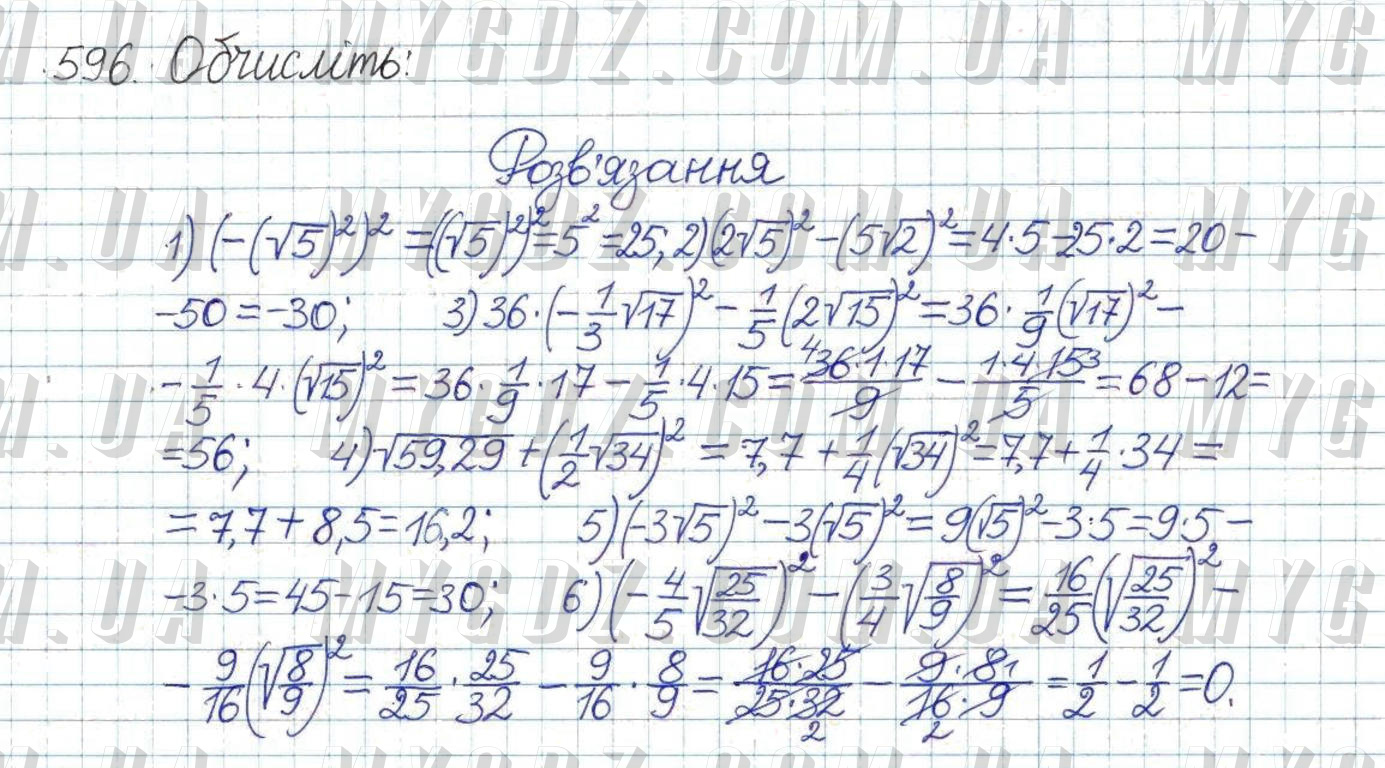 596. Обчисліть:
Розв'язання
1) (-(√5)²)² = ((√5)²)² = 5² = 25; 2) (2√5)² - (5√2)² = 4·5 - 25·2 = 20 -
- 50 = -30; 3) 36·(-1/3 √17)² - 1/5 (2√15)² = 36 · 1/9 (√17)² -
- 1/5 · 4 · (√15)² = 36 · 1/9 · 17 - 1/5 · 4 · 15 = 4 36·1·17/9 - 1·4·15 3/5 = 68 - 12 =
= 56; 4) √59,29 + (1/2 √34)² = 7,7 + 1/4 (√34)² = 7,7 + 1/4 · 34 =
= 7,7 + 8,5 = 16,2; 5) (-3√5)² - 3(√5)² = 9(√5)² - 3·5 = 9·5 -
- 3·5 = 45 - 15 = 30; 6) (-4/5 √25/32)² - (3/4 √8/9)² = 16/25 (√25/32)² -
- 9/16 (√8/9)² = 16/25 · 25/32 - 9/16 · 8/9 = 16·25/25·32 2 - 9·8 1/16·9 2 = 1/2 - 1/2 = 0.
MYGDZ.COM.UA